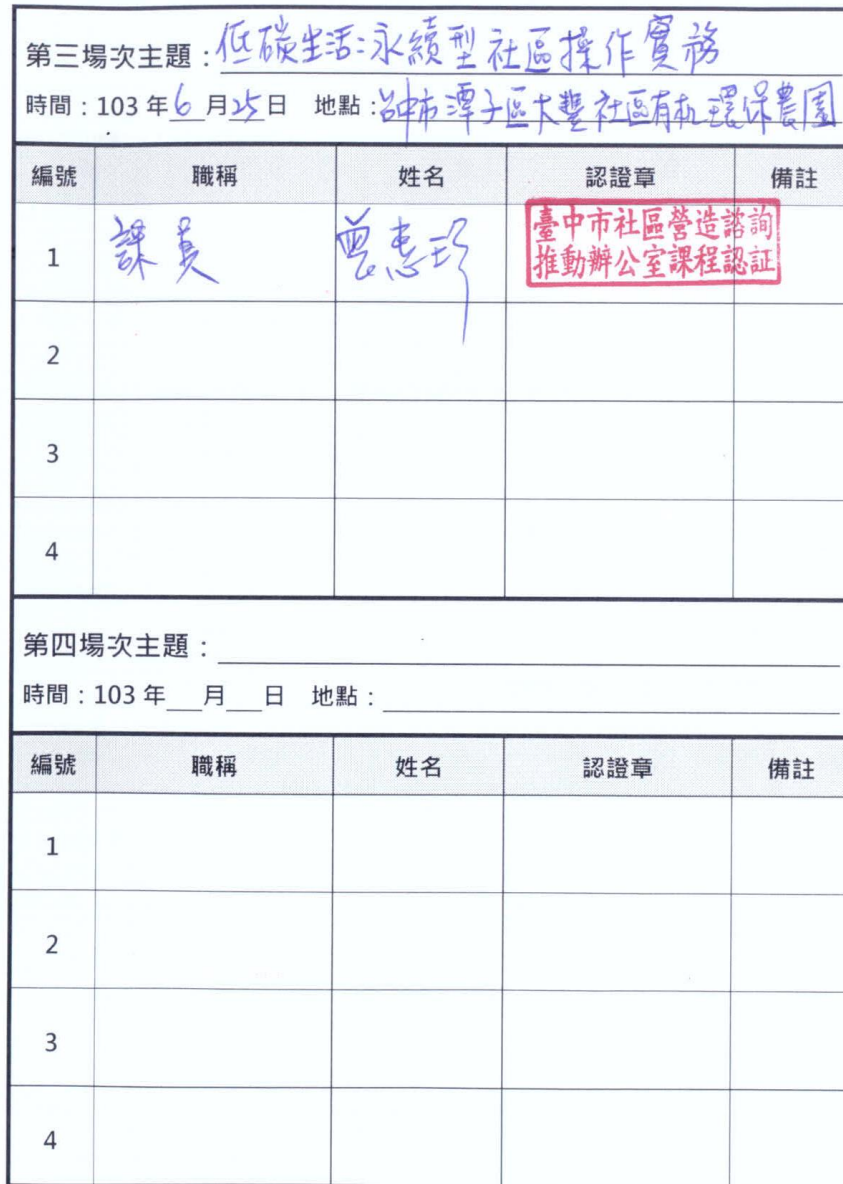 第三場次主題：低碳生活:永續型社區操作實務
時間：103 年 6 月 25 日 地點：台中市潭子區大豐社區有机環保農園
編號 職稱 姓名 認證章 備註
1 課員 曾惠珍 臺中市社區營造諮詢
推動辦公室課程認証
2
3
4
第四場次主題：
時間：103 年__月__日 地點：
編號 職稱 姓名 認證章 備註
1
2
3
4